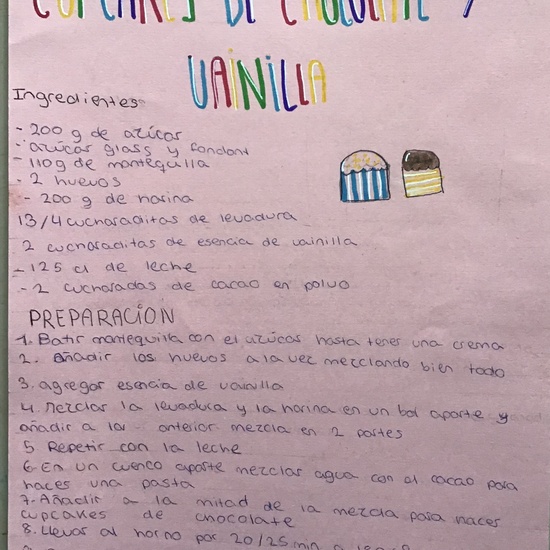 CUPCAKES DE CHOCOLATE Y
VAINILLA
Ingredientes
- 200 g de azúcar
- azúcar glass y fondant
- 110g de mantequilla
- 2 huevos
- 200 g de harina
13/4 cucharaditas de levadura
2 cucharaditas de esencia de vainilla
- 125 cl de leche
- 2 cucharadas de cacao en polvo
PREPARACIÓN
1. Batir mantequilla con el azúcar hasta tener una crema
2. añadir los huevos a la vez mezclando bien todo
3. agregar esencia de vainilla
4. Mezclar la levadura y la harina en un bol aparte y
añadir a la anterior mezcla en 2 partes
5. Repetir con la leche
6- En un cuenco aparte mezclar agua con el cacao para
hacer una pasta
7- Añadir a la mitad de la mezcla para hacer
cupcakes de chocolate
8. Llevar al horno por 20/25 min a